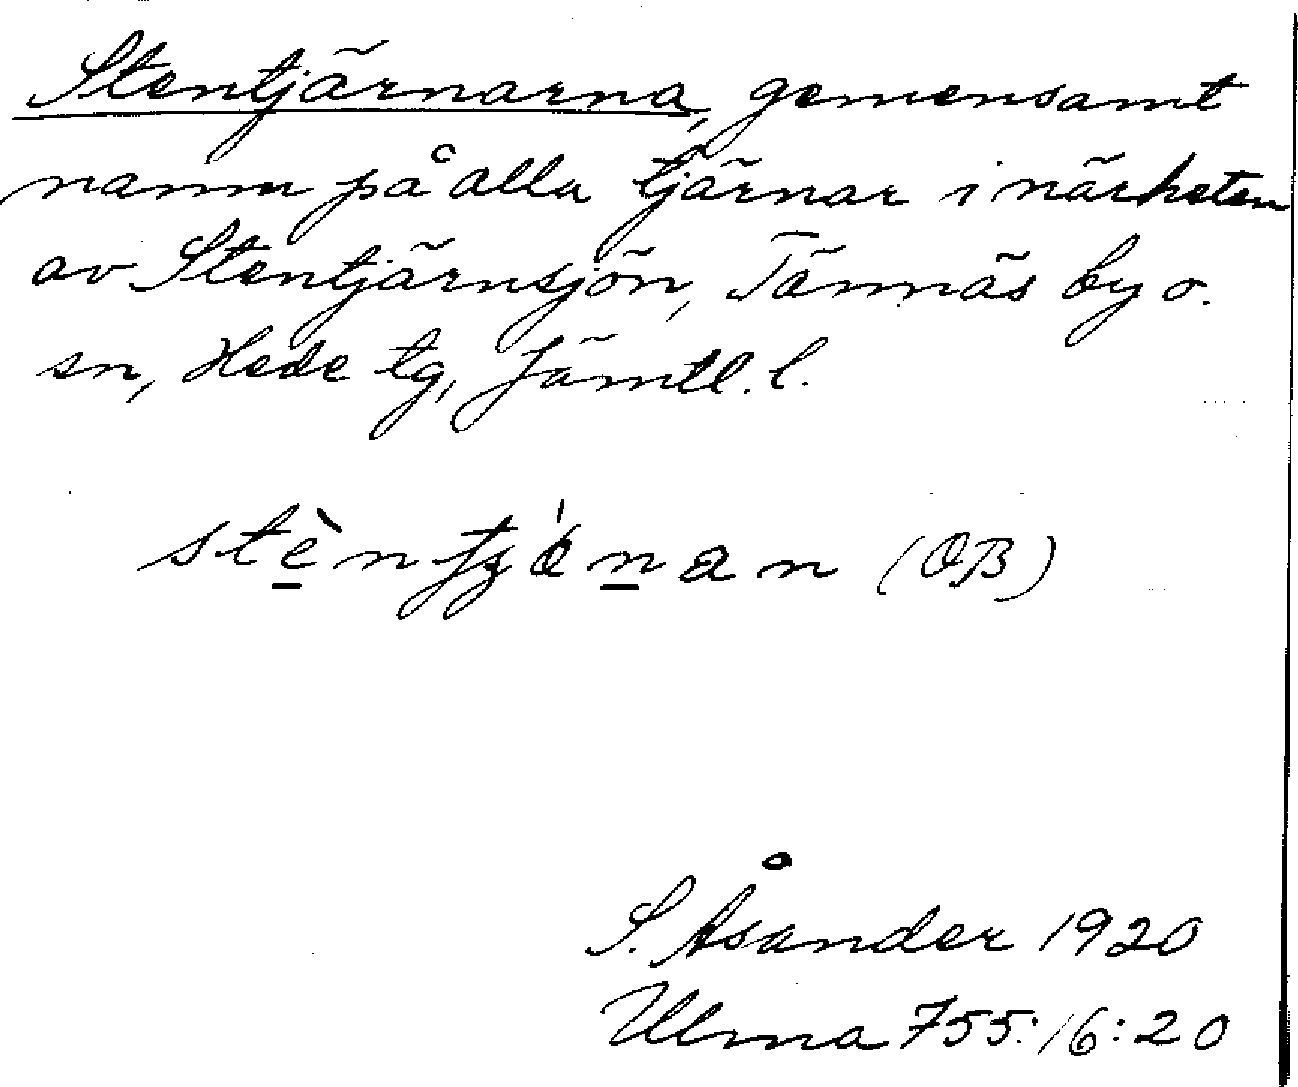 Stentjärnarna, gemensamt
namn på alla tjärnar i närheten
av Stentjärnsjön, Tännäs by o.
sn, Hede tg, Jämtl. l.
(OB)
S. Åsander 1920
Ulma 755:16:20